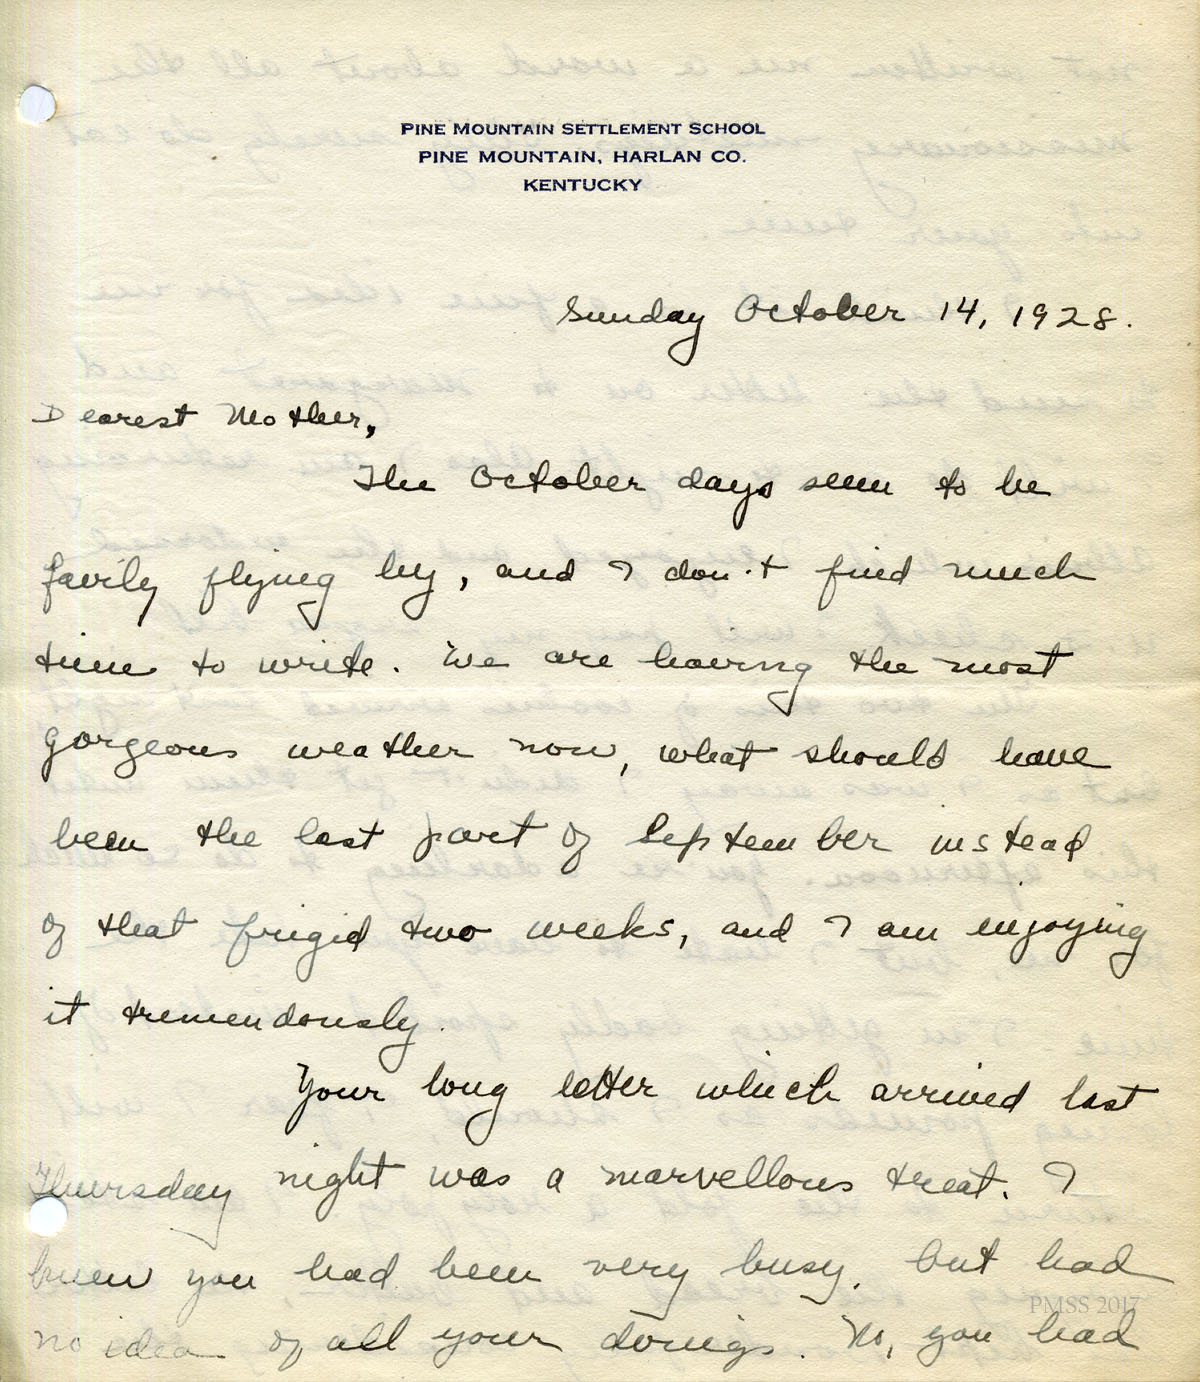 PINE MOUNTAIN SETTLEMENT SCHOOL
PINE MOUNTAIN, HARLAN CO.
KENTUCKY
Sunday October 14, 1928.
Dearest Mother,
The October days seem to be
fairly flying by, and I don't find much
time to write. We are having the most
gorgeous weather now, what should have
been the last part of September instead
of that frigid two weeks, and I am enjoying
it tremendously.
Your long letter which arrived last
Thursday night was a marvellous treat. I
knew you had been very busy, but had
no idea of all your doings. No, you had
PMSS 2017